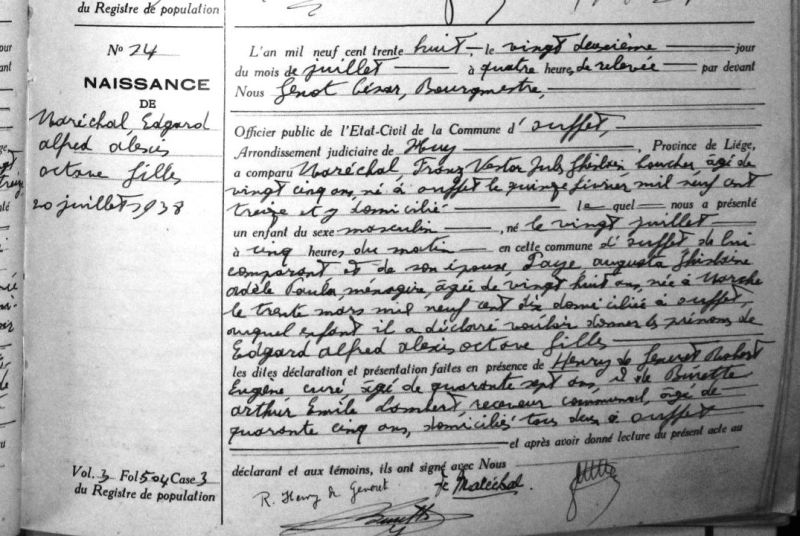 du Registre de population
No 24
NAISSANCE
DE
Maréchal Edgard
alfred alexis
octave gilles
20 juillet 1938
Vol. 3 Fol 504 Case 3
du Registre de population
L'an mil neuf cent trente huit, le vingt deuxième jour
du mois de juillet à quatre heures de relevée par devant
Nous Genot César, Bourgmestre,
Officier public de l'Etat-Civil de la Commune d'ouffet,
Arrondissement judiciaire de Huy, Province de Liége,
a comparu Maréchal, Franz Jules Ghislain boucher, âgé de
vingt cinq ans, né à ouffet le quinze février mil neuf cent
treize et y domicilié lequel nous a présenté
un enfant du sexe masculin, né le vingt juillet
à cinq heures du matin en cette commune d'ouffet de lui
comparant et de son épouse, Paye, augusta Ghislaine
adèle Paula, ménagère, âgée de vingt huit ans, née à Marche
le trente mars mil neuf cent dix domiciliée à ouffet,
auquel enfant il a déclaré vouloir donner les prénoms de
Edgard alfred alexis octave gilles
les dites déclaration et présentation faites en présence de Henry de Robert
Eugène curé âgé de quarante sept ans, et de Burette
arthur Emile Lambert, receveur communal, âgé de
quarante cinq ans, domiciliés tous deux à ouffet
et après avoir donné lecture du présent acte au
déclarant et aux témoins, ils ont signé avec Nous
R. Henry de Maréchal
Burette